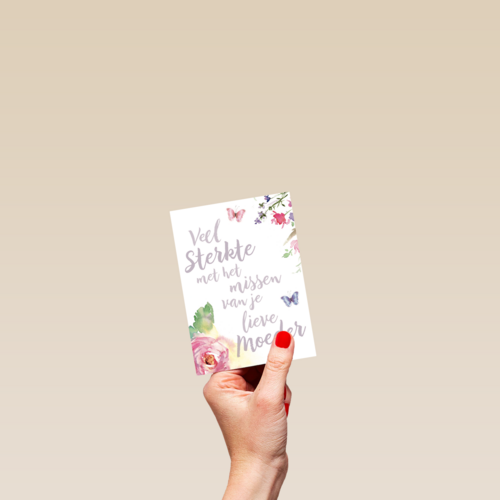 Veel
Sterkte
met het
missen
van je
lieve
Moeder